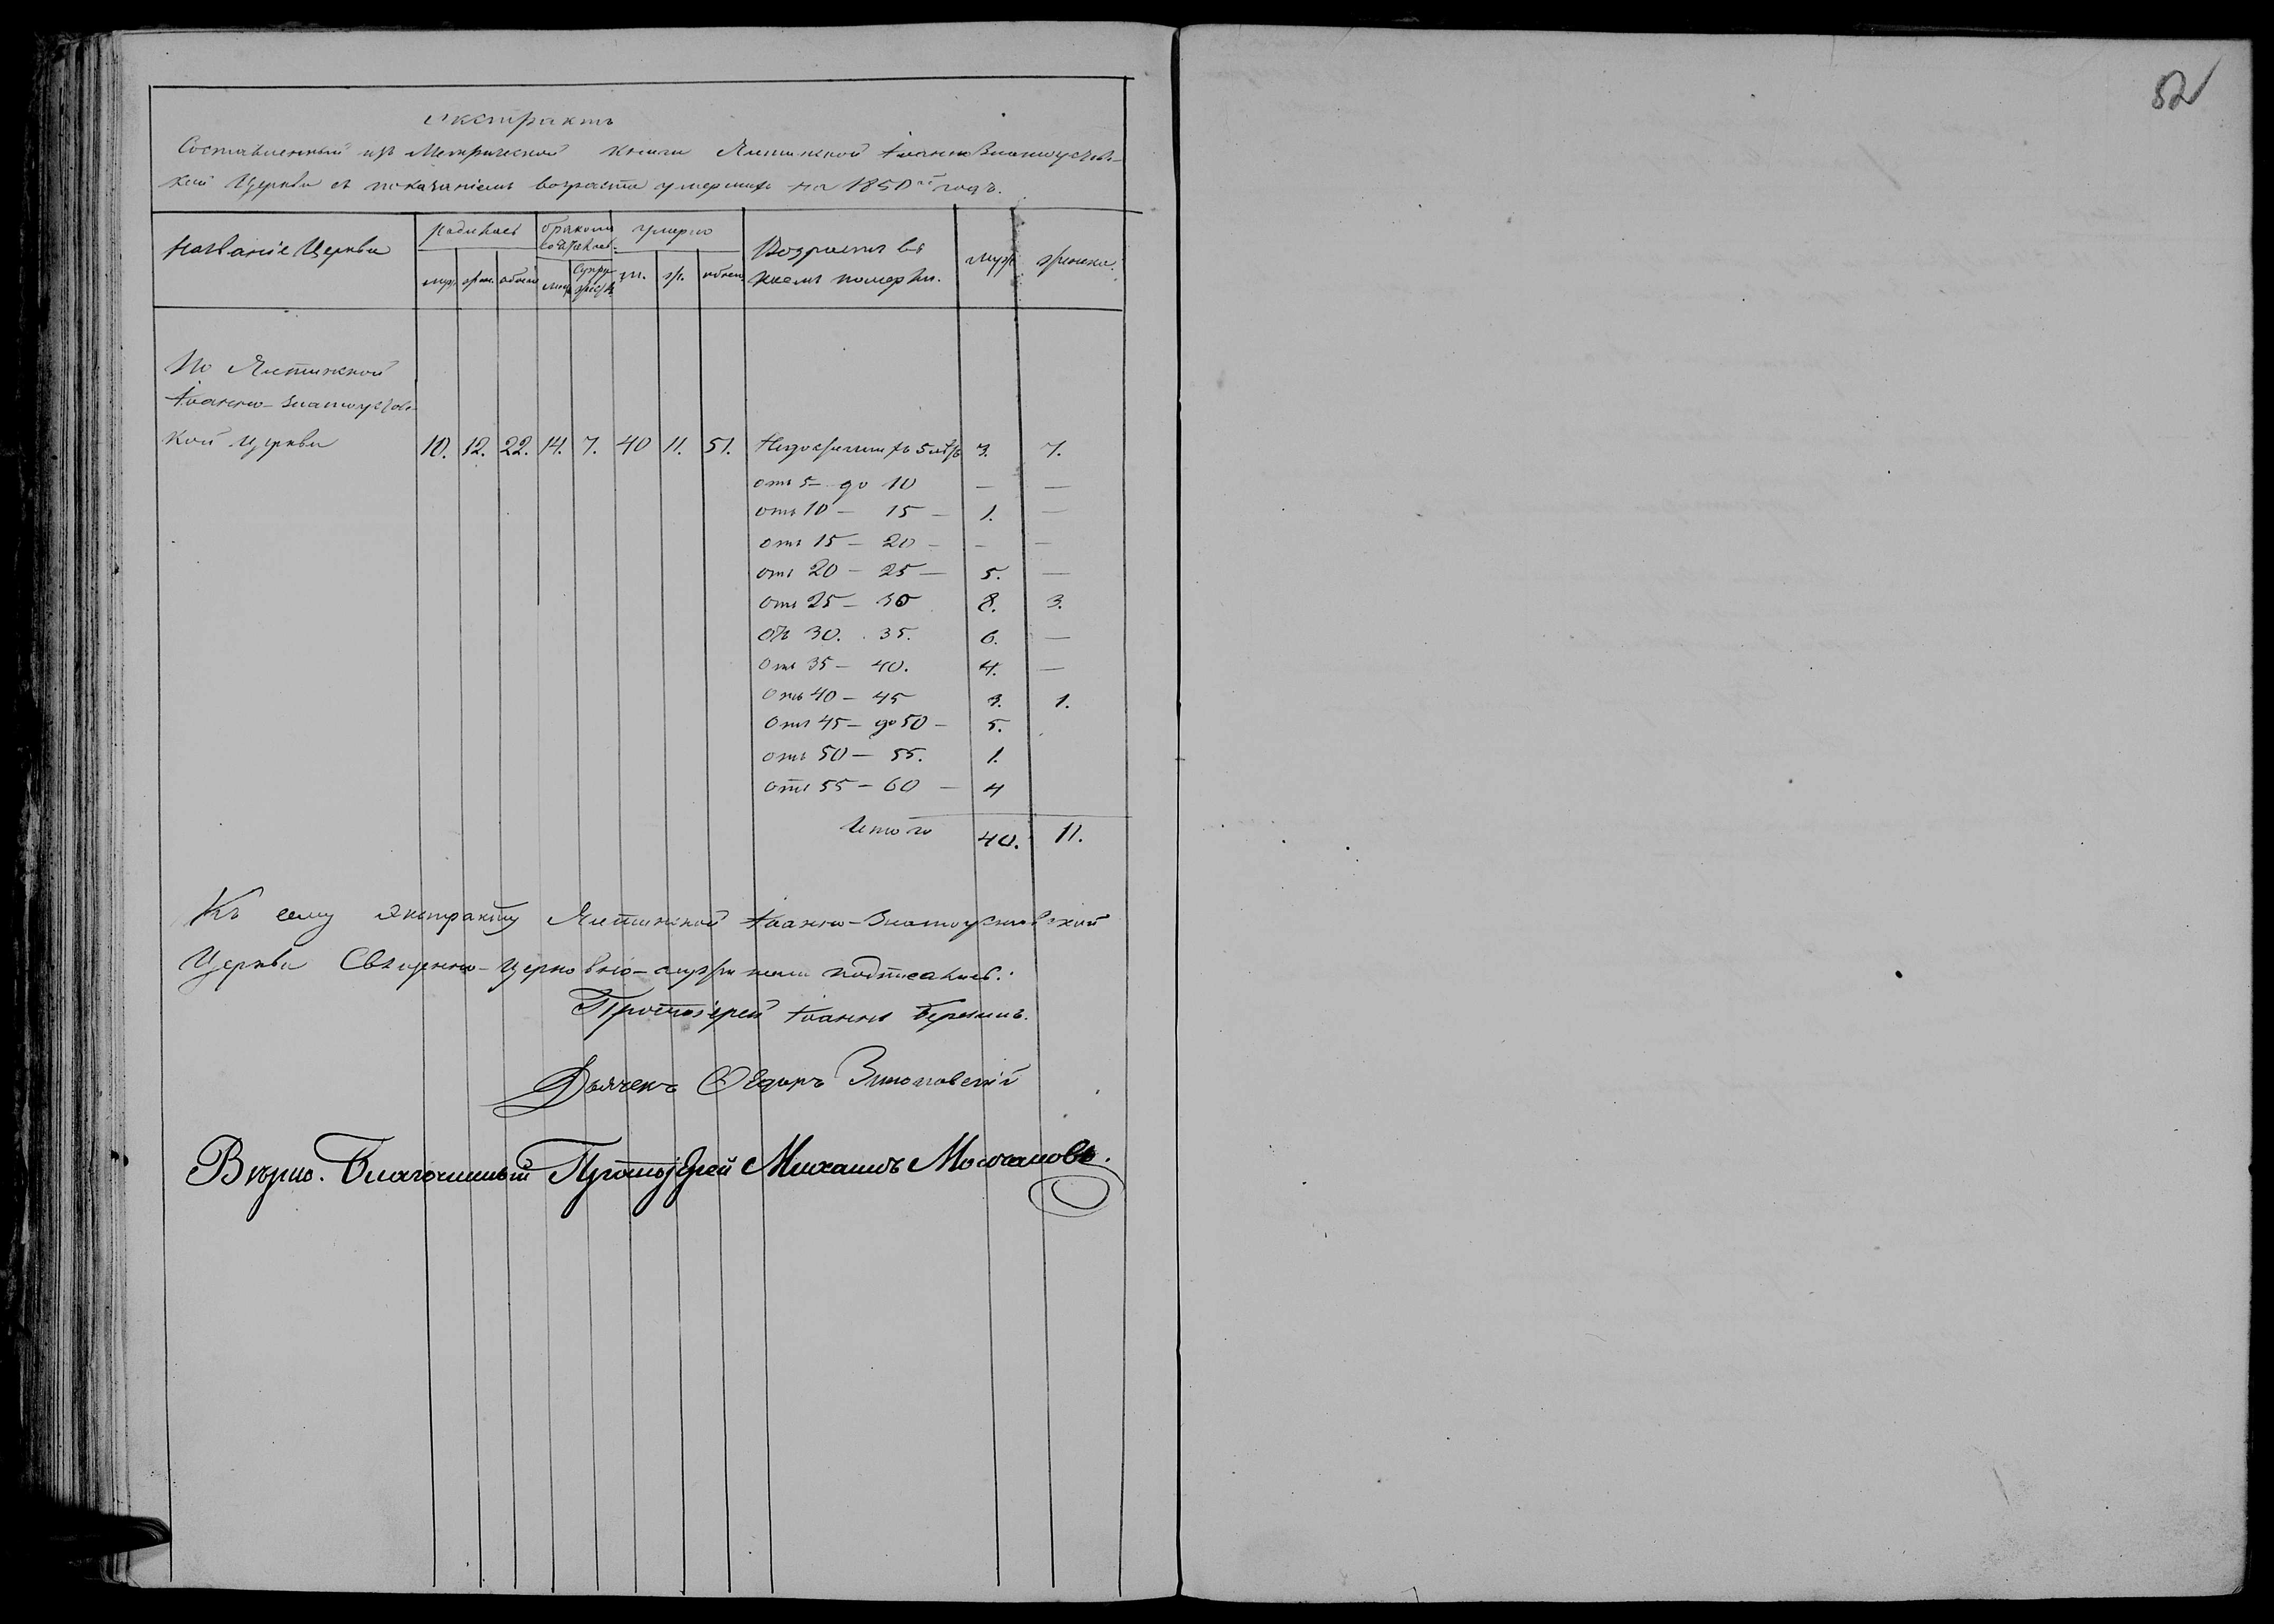 Экстрактъ
Составленный изъ Метрической книги Ялтинской Іоанно Златоустов-
ской Церкви съ показаніемъ возраста умершихъ на 1850й годъ.
Названіе Церкви
родилось
браковъ
умерло
Возрастъ въ
коемъ померли.
муж.
женска.
муж. жен. обоего
м. ж. обоего
По Ялтинской
Іоанно-Златоустов-
ской Церкви 10. 12. 22. 14. 7. 40 11. 51. Недожившихъ 5 лѣтъ 3. 7.
отъ 5 – до 10 — —
отъ 10 – 15 – 1. —
отъ 15 – 20 – — —
отъ 20 – 25 — 5. —
отъ 25 – 30 8. 3.
отъ 30. 35. 6. —
отъ 35 – 40. 4. —
отъ 40 – 45 3. 1.
отъ 45 – до 50 – 5.
отъ 50 – 55. 1.
отъ 55 – 60 – 4
Итого 40. 11.
Къ сему экстракту Ялтинской Іоанно-Златоустовской
Церкви Священно-церковно-служители подписались:
Протоіерей Іоаннъ
Дьячекъ Ѳедоръ
Вѣрно. Благочинный Протоіерей Михаилъ Молчановъ.
52